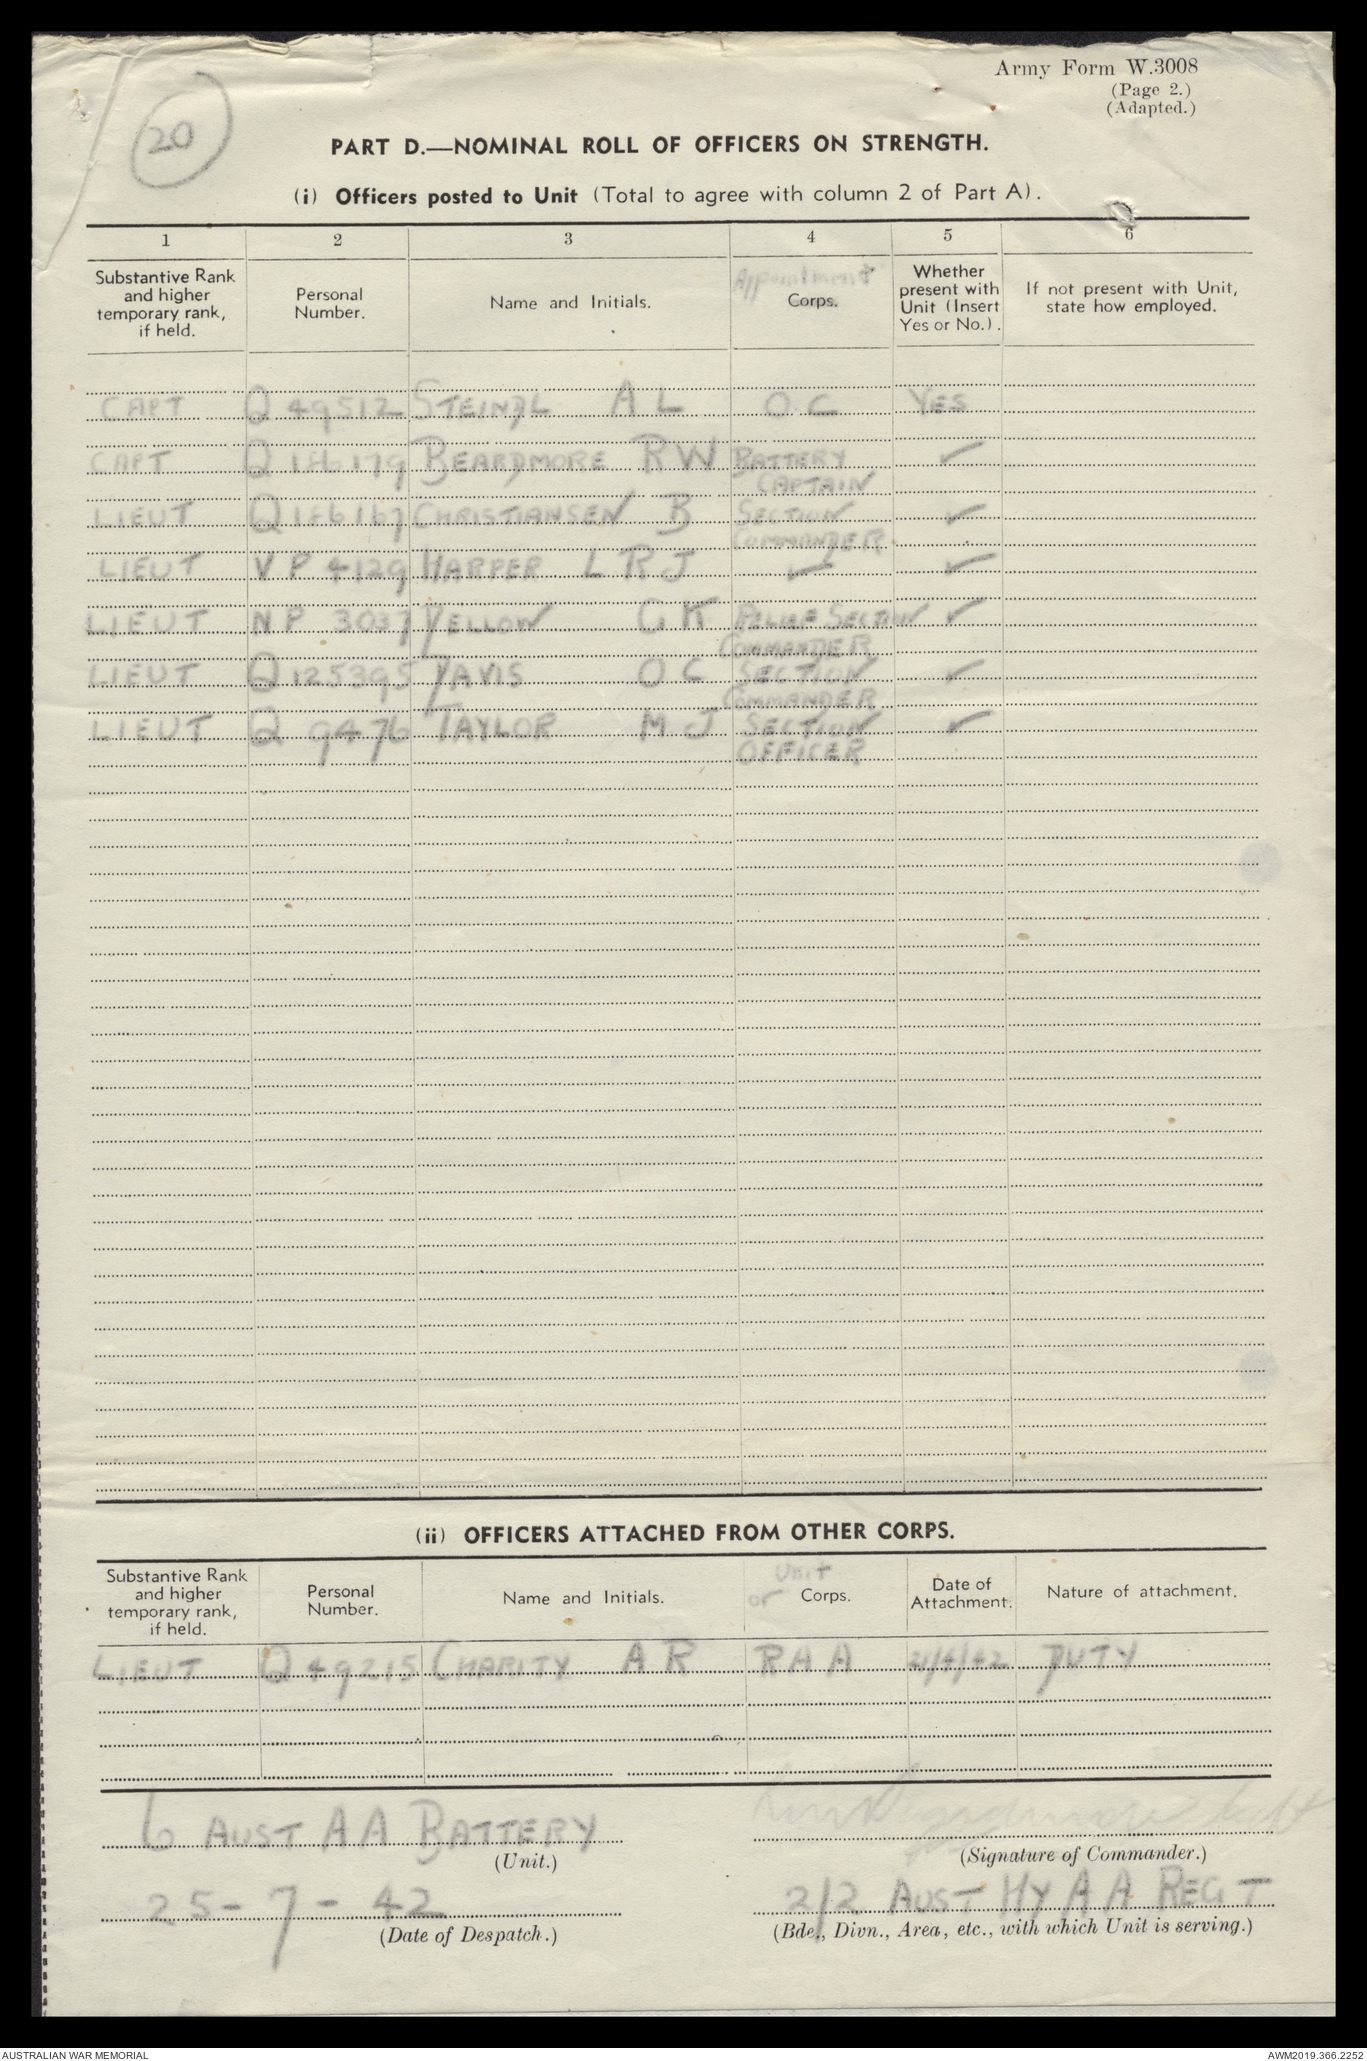 Army Form W.3008
(Page 2.)
(Adapted.)
20
PART D.—NOMINAL ROLL OF OFFICERS ON STRENGTH.
(i) Officers posted to Unit (Total to agree with column 2 of Part A).
1 2 3 4 5 6
Substantive Rank and higher temporary rank, if held. Personal Number. Name and Initials. Appointment Corps. Whether present with Unit (Insert Yes or No.). If not present with Unit, state how employed.
CAPT Q 49512 STEINDL A L O C YES
CAPT Q 186179 BEARDMORE R W BATTERY CAPTAIN ✓
LIEUT Q 186167 CHRISTIANSEN B SECTION COMMANDER ✓
LIEUT V P 4129 HARPER L R J ✓ ✓
LIEUT N P 3037 YELLOW C K RELIEF SECTION COMMANDER ✓
LIEUT Q 125395 DAVIS O C SECTION COMMANDER ✓
LIEUT Q 9476 TAYLOR M J SECTION OFFICER ✓
(ii) OFFICERS ATTACHED FROM OTHER CORPS.
Substantive Rank and higher temporary rank, if held. Personal Number. Name and Initials. Unit or Corps. Date of Attachment. Nature of attachment.
LIEUT Q 49215 CHARITY A R R A A DUTY
6 AUST A A BATTERY
(Unit.)
(Signature of Commander.)
25-7-42
(Date of Despatch.)
2/2 AUST HY A A REGT
(Bde., Divn., Area, etc., with which Unit is serving.)
AUSTRALIAN WAR MEMORIAL
AWM2019.366.2252